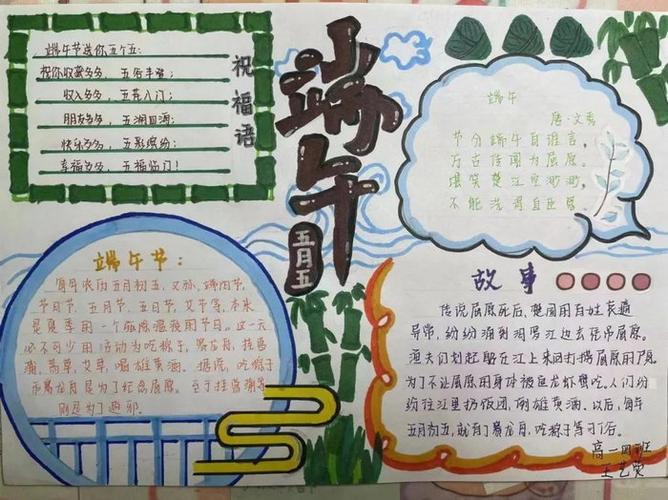 端午节送你五个五：
祝你收获多多，五谷丰登；
收入多多，五花入门；
朋友多多，五湖四海；
快乐多多，五彩缤纷；
幸福多多，五福临门！
祝福语
端午
五月五
端午
唐·文秀
节分端午自谁言，
万古传闻为屈原。
堪笑楚江空渺渺，
不能洗得直臣冤。
端午节：
每年农历五月初五，又称，端阳节，
节日节，五月节，五日节，艾节等，本来
是夏季用一个驱除瘟疫用节日。这一天
必不可少用活动为吃粽子，赛龙舟，挂菖
蒲，蒿草，艾草，喝雄黄酒。据说，吃粽子
市赛龙舟是为了纪念屈原。至于挂菖蒲等
则是为了避邪。
故事
传说屈原死后，楚国用百姓哀
异常，纷纷涌到汨罗江边去凭吊屈原。
渔夫们划起船在江上来回打捞屈原用尸身。
为了不让屈原用身体被鱼龙虾蟹吃。人们纷
纷往江里扔饭团，倒雄黄酒。以后，每年
五月初五，就有了赛龙舟，吃粽子等习俗。
高一四班
王艺